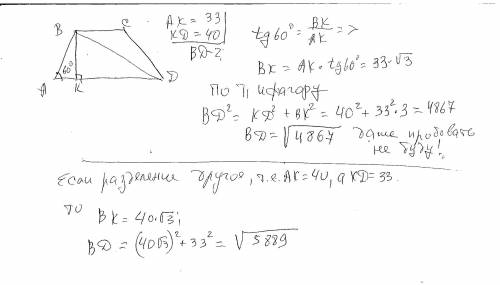 B C
A 60° K D
AK = 33
KD = 40
BD-?
tg 60° = BK/AK =>
BK = AK · tg 60° = 33·√3
по т. Пифагору
BD² = KD² + BK² = 40² + 33²·3 = 4867
BD = √4867 даже пробовать
не буду!
Если разделение другое, т.е. AK = 40, а KD = 33.
то
BK = 40·√3;
BD = (40√3)² + 33² = √5889